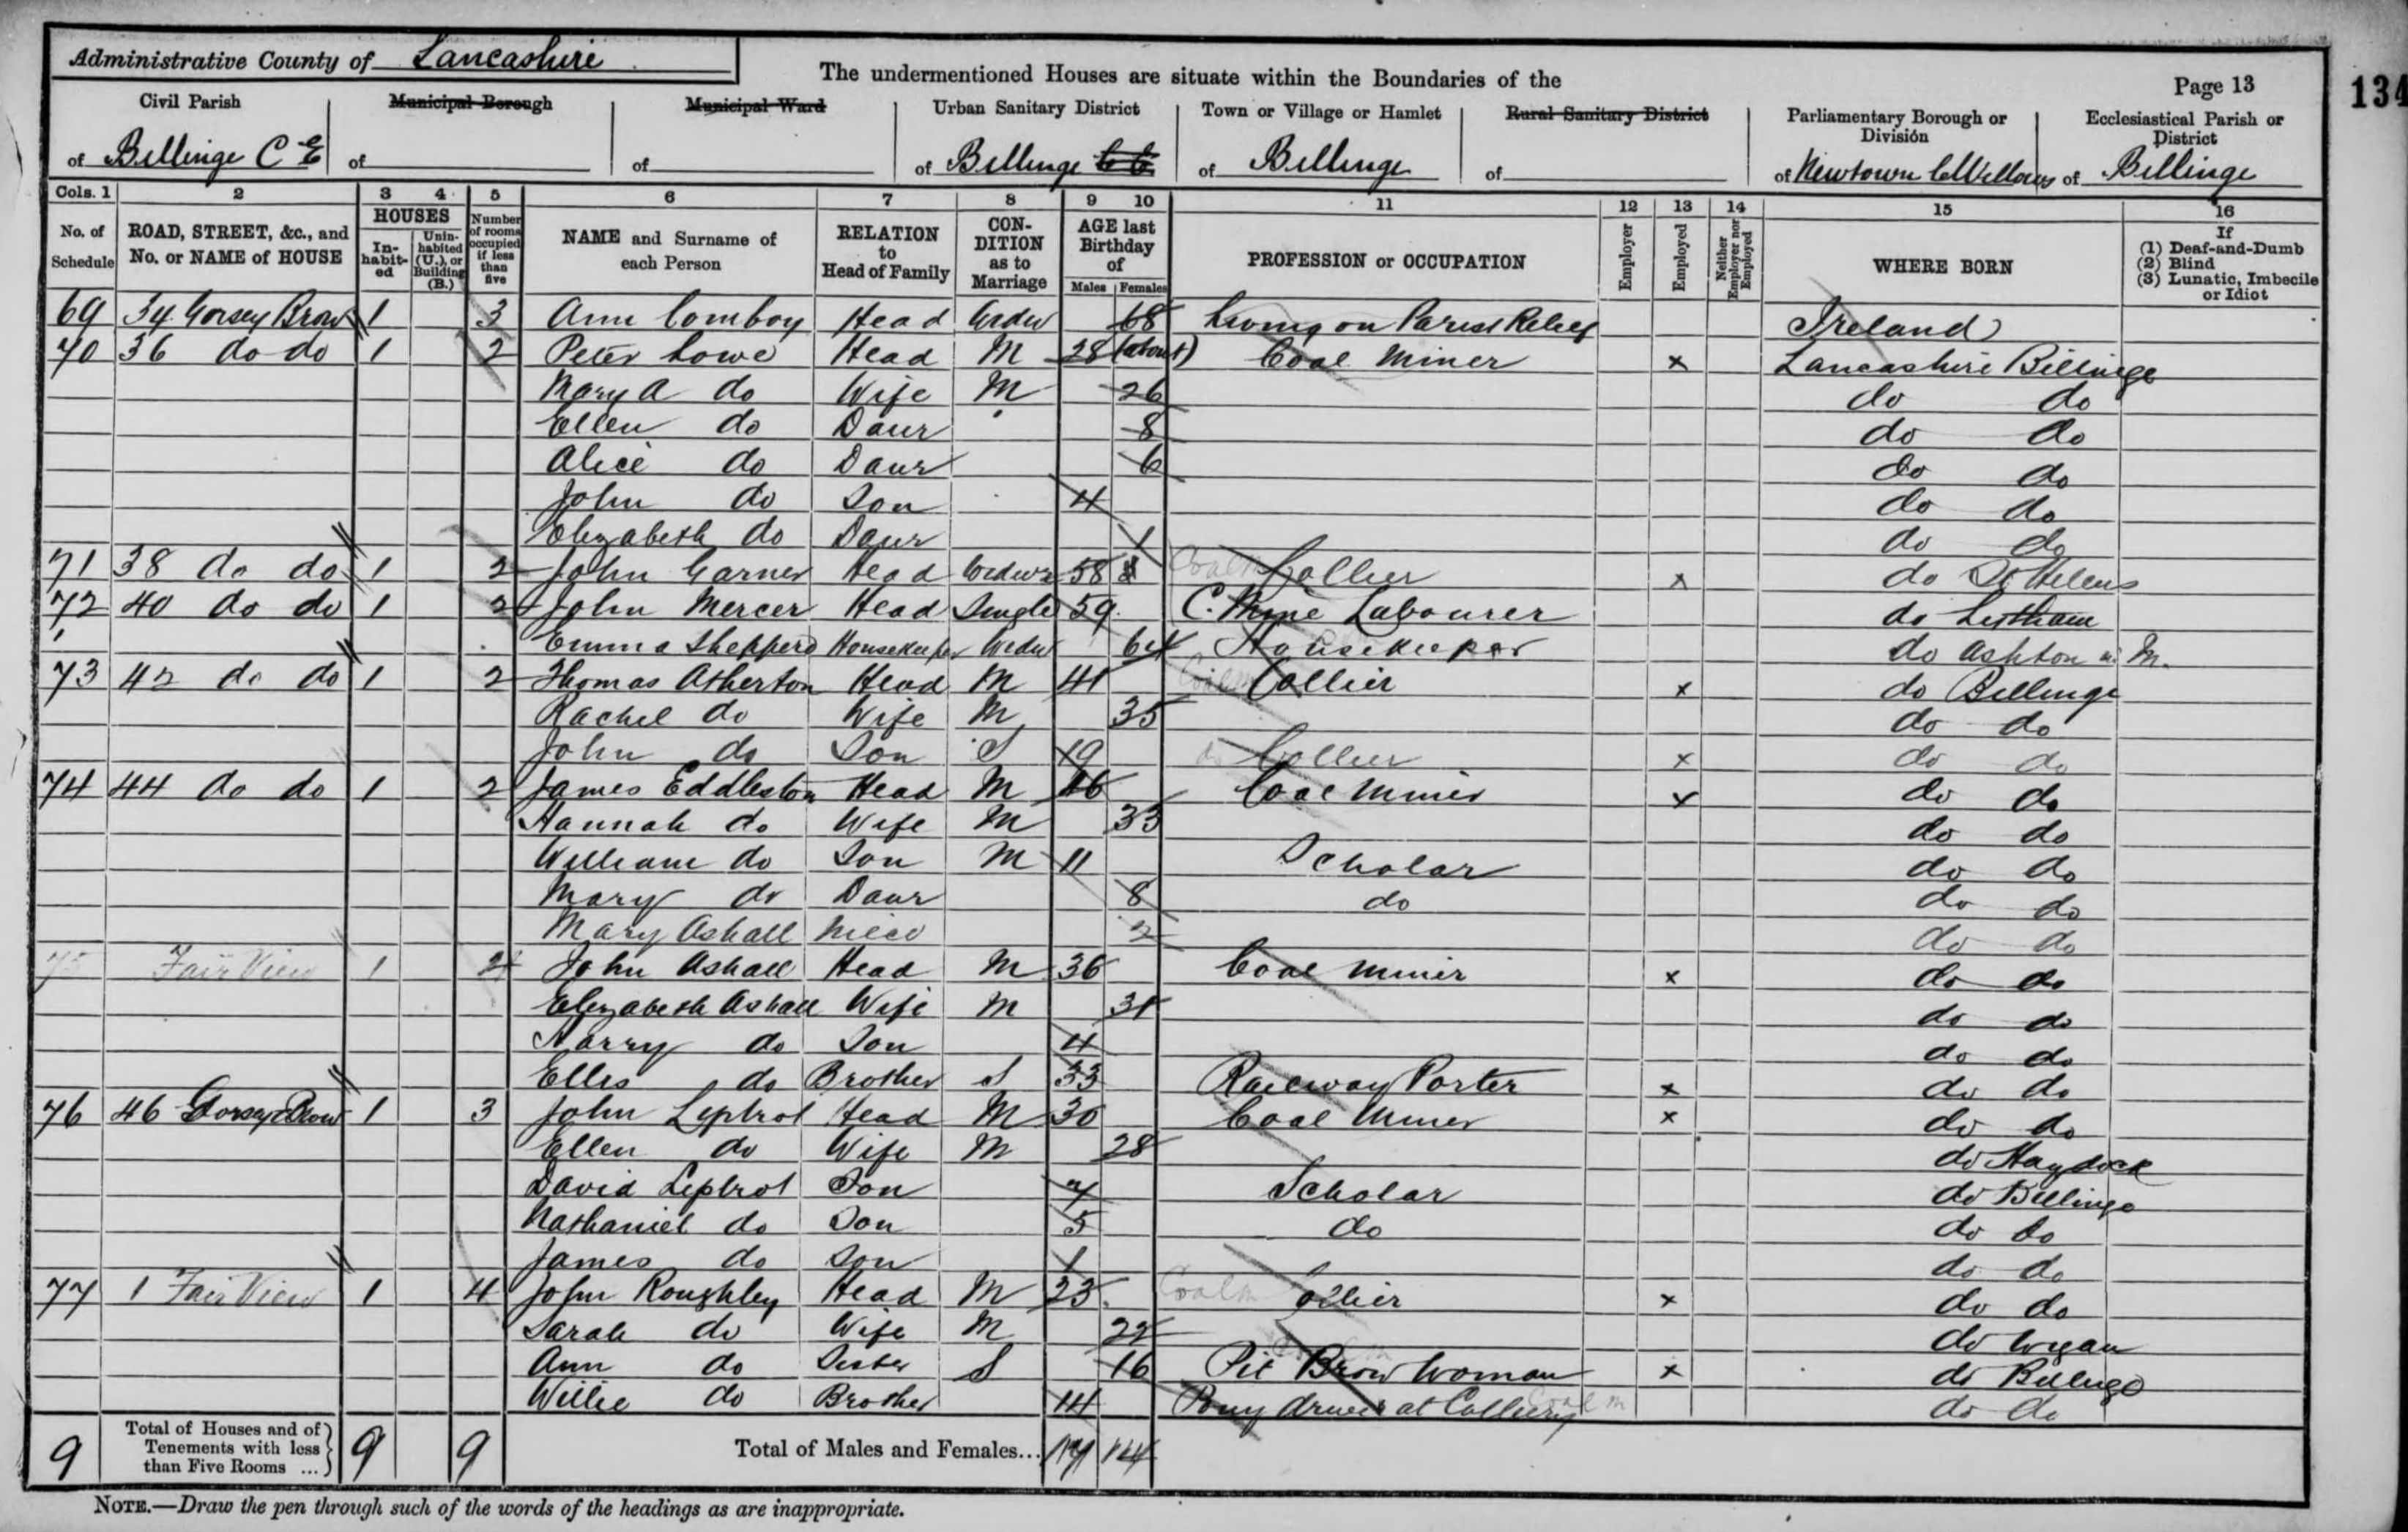 Administrative County of Lancashire
The undermentioned Houses are situate within the Boundaries of the
Page 13
134
Civil Parish Municipal Borough Municipal Ward Urban Sanitary District Town or Village or Hamlet Rural Sanitary District Parliamentary Borough or Division Ecclesiastical Parish or District
of Billinge C E of of of Billinge of Billinge of of Newtown of Billinge
Cols. 1 2 3 4 5 6 7 8 9 10 11 12 13 14 15 16
No. of Schedule ROAD, STREET, &c., and No. or NAME of HOUSE HOUSES In-habit-ed Unin-habited (U.), or Building (B.) Number of rooms occupied if less than five NAME and Surname of each Person RELATION to Head of Family CON-DITION as to Marriage AGE last Birthday of Males Females PROFESSION or OCCUPATION Employer Employed Neither Employer nor Employed WHERE BORN If (1) Deaf-and-Dumb (2) Blind (3) Lunatic, Imbecile or Idiot
69 34 Gorsey Brow 1 3 Ann Comboy Head Widw 68 Living on Parish Relief Ireland
70 36 do do 1 2 Peter Lowe Head M 28 (about) Coal Miner x Lancashire Billinge
Mary A do Wife M 26 do do
Ellen do Daur 8 do do
Alice do Daur 6 do do
John do Son 4 do do
Elizabeth do Daur 1 do do
71 38 do do 1 2 John Garner Head Widwr 58 Coal m Collier x do St Helens
72 40 do do 1 2 John Mercer Head Single 59 C. Mine Labourer do Lytham
Emma Shepperd Housekeeper Widw 64 Housekeeper do Ashton in M.
73 42 do do 1 2 Thomas Atherton Head M 41 Coal m Collier x do Billinge
Rachel do Wife M 35 do do
John do Son S 19 do Collier x do do
74 44 do do 1 2 James Eddleston Head M 46 Coal Miner x do do
Hannah do Wife M 33 do do
William do Son M 11 Scholar do do
Mary do Daur 8 do do do
Mary Ashall Niece 2 do do
75 Fair View 1 4 John Ashall Head M 36 Coal Miner x do do
Elizabeth Ashall Wife M 31 do do
Harry do Son 4 do do
Ellis do Brother S 33 Railway Porter x do do
76 46 Gorsey Brow 1 3 John Leptrot Head M 30 Coal Miner x do do
Ellen do Wife M 28 do Haydock
David Leptrot Son 7 Scholar do Billinge
Nathaniel do Son 5 do do do
James do Son 1 do do
77 1 Fair View 1 4 John Roughley Head M 23 Coal m Collier x do do
Sarah do Wife M 22 do Wigan
Ann do Sister S 16 Pit Brow Woman x do Billinge
Willie do Brother 14 Pony driver at Colliery Coal m do do
9 Total of Houses and of Tenements with less than Five Rooms ... 9 9 Total of Males and Females... 17 14
NOTE.—Draw the pen through such of the words of the headings as are inappropriate.